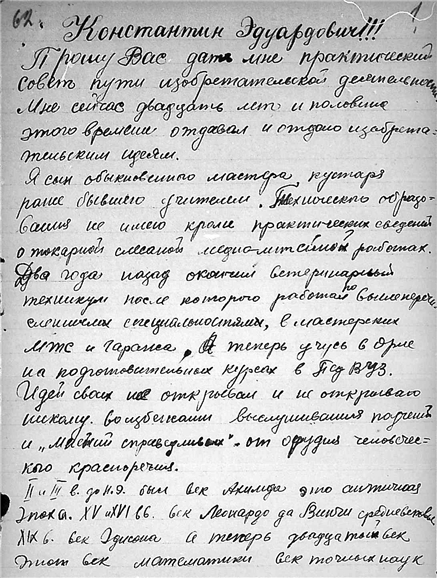 62.
1
Константин Эдуардович!!!
Прошу Вас дать мне практический
совет пути изобретательской деятельности
Мне сейчас двадцать лет и половина
этого времени отдавал и отдаю изобрета-
тельским идеям.
Я сын обыкновенного мастера кустаря
ране бывшего учителем. Технического образо-
вания не имею кроме практических сведений
о токарной слесарной медно-литейной работах.
Два года назад окончил ветеринарный
техникум после которого работал по вышепере-
сленным специальностям, в мастерских
МТС и гаража, а теперь учусь в Орле
на подготовительных курсах в ВУЗ.
Идей своих не открывал и не открываю
никому. во избежании выслушивания
и "мнений справедливых" от орудия человечес-
кого красноречия.
II и III в. до н.э. был век Ахимида это античная
эпоха. XV и XVI вв. век Леонардо да Винчи средневековая
XIX в. век Эдисона а теперь двадцатый век
Этот век математики век точных наук